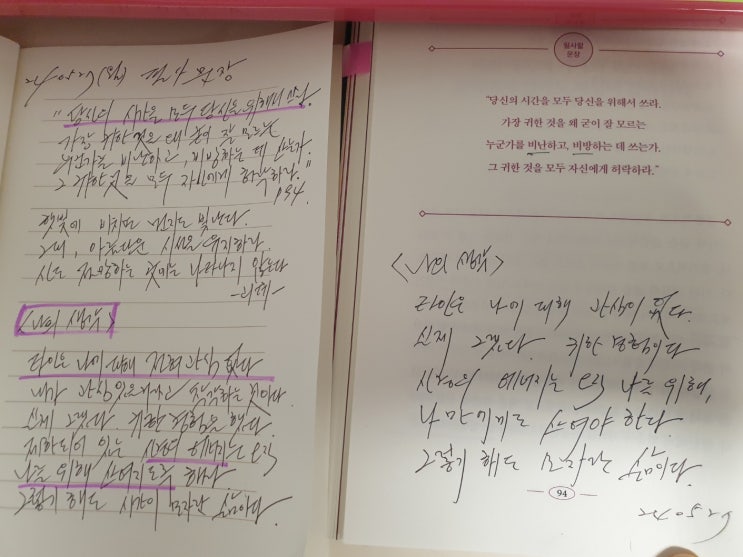 240527(월) 필사 문장
"당신의 시간을 모두 당신을 위해서 쓰라.
가장 귀한 것을 왜 굳이 잘 모르는
누군가를 비난하고, 비방하는 데 쓰는가.
그 귀한 것을 모두 자신에게 허락하라."
P94.
햇빛에 비치면 먼지도 빛난다.
그러니, 아름다운 시선을 유지하라.
신은 절망하는 곳에는 나타나지 않는다
-괴테-
<나의 생각>
타인은 나에 대해 전혀 관심 없다
내가 관심있으리라고 생각하는 것이다.
실제 그랬다. 귀한 경험을 했다.
제한되어 있는 시간과 에너지는 오직
나를 위해 쓰여지도록 하자
그렇게 해도 시간이 모자란 삶이다.
필사할
문장
"당신의 시간을 모두 당신을 위해서 쓰라.
가장 귀한 것을 왜 굳이 잘 모르는
누군가를 비난하고, 비방하는 데 쓰는가.
그 귀한 것을 모두 자신에게 허락하라."
<나의 생각>
타인은 나에 대해 관심이 없다.
실제 그랬다. 귀한 경험이다
시간과 에너지는 오직 나를 위해,
나만에게로 쓰여야 한다.
그렇게 해도 모자란 삶이다.
94
240529